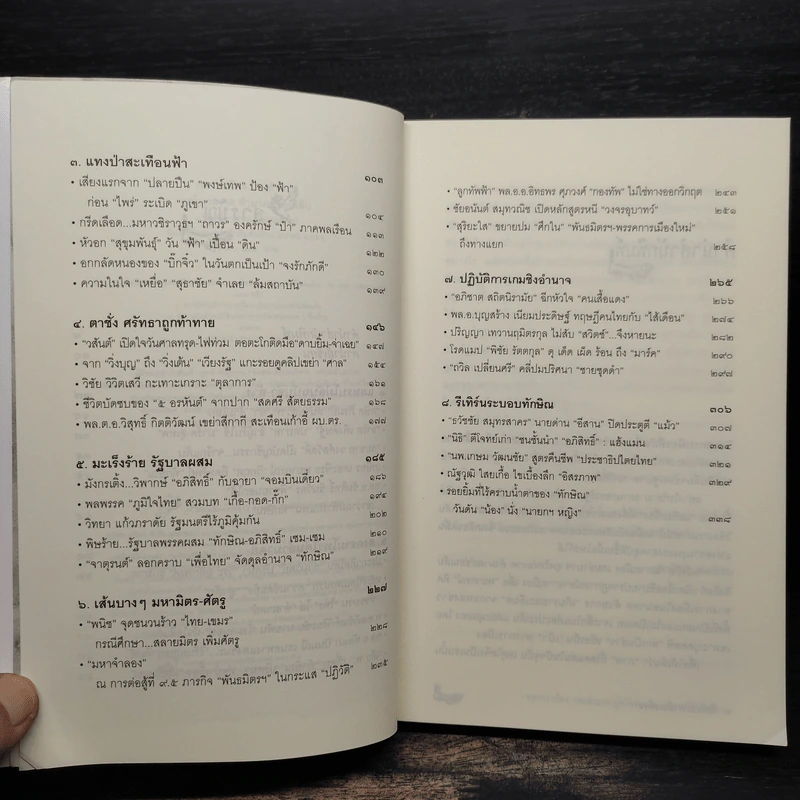 ๓. แทงป่าสะเทือนฟ้า ๑๐๓
• เสียงแรกจาก “ปลายปืน” “พงษ์เทพ” ป้อง “ฟ้า”
ก่อน “ไพร่” ระเบิด “ภูเขา” ๑๐๔
• กรีดเลือด...มหาวชิราวุธฯ “ถาวร” องครักษ์ “ป๋า” ภาคพลเรือน ๑๑๓
• หัวอก “สุขุมพันธุ์” วัน “ฟ้า” เปื้อน “ดิน” ๑๒๒
• อกกลัดหนองของ “บิ๊กจิ๋ว” ในวันตกเป็นเป้า “จงรักภักดี” ๑๓๐
• ความในใจ “เหยื่อ” “สุธาชัย” จำเลย “ล้มสถาบัน” ๑๓๙
๔. ตาชั่ง ศรัทธาถูกท้าทาย ๑๔๖
• “วสันต์” เปิดใจวันศาลทรุด-ไฟท่วม ตอตะโกติดมือ“ดาบยิ้ม-จ่าเฉย” ๑๔๗
• จาก “วิ่งบุญ” ถึง “วิ่งเต้น” “เวียงรัฐ” แกะรอยดูคลิปเขย่า “ศาล” ๑๕๔
• วิชัย วิวิตเสวี กะเทาะเกราะ “ตุลาการ” ๑๖๑
• ชีวิตบัดซบของ “๕ อรหันต์” จากปาก “สดศรี สัตยธรรม” ๑๖๘
• พล.ต.อ.วิสุทธิ์ กิตติวัฒน์ เขย่าสีกากี สะเทือนเก้าอี้ ผบ.ตร. ๑๗๗
๕. มะเร็งร้าย รัฐบาลผสม ๑๘๕
• มังกรเติ้ง...วิพากษ์ “อภิสิทธิ์” กับฉายา “จอมบินเดี่ยว” ๑๘๖
• พลพรรค “ภูมิใจไทย” สวมบท “เกื้อ-กอด-กั๊ก” ๑๙๔
• วิทยา แก้วภราดัย รัฐมนตรีไร้ภูมิคุ้มกัน ๒๐๒
• พิษร้าย...รัฐบาลพรรคผสม “ทักษิณ-อภิสิทธิ์” เซม-เซม ๒๑๐
• “จาตุรนต์” ลอกคราบ “เพื่อไทย” จัดดุลอำนาจ “ทักษิณ” ๒๑๙
๖. เส้นบางๆ มหามิตร-ศัตรู ๒๒๗
• “พนิช” จุดชนวนร้าว “ไทย-เขมร”
กรณีศึกษา...สลายมิตร เพิ่มศัตรู ๒๒๘
• “มหาจำลอง”
ณ การต่อสู้ที่ ๙.๕ ภารกิจ “พันธมิตรฯ” ในกระแส “ปฏิวัติ” ๒๓๕
• “ลูกทัพฟ้า” พล.อ.อ.อิทธพร ศุภวงศ์ “กองทัพ” ไม่ใช่ทางออกวิกฤต ๒๔๓
• ชัยอนันต์ สมุทวณิช เปิดหลักสูตรหนี “วงจรอุบาทว์” ๒๕๑
• “สุริยะใส” ขยายปม “ศึกใน” “พันธมิตรฯ-พรรคการเมืองใหม่”
ถึงทางแยก ๒๕๘
๗. ปฏิบัติการเกมชิงอำนาจ ๒๖๕
• “อภิชาต สถิตนิรามัย” ฉีกหัวใจ “คนเสื้อแดง” ๒๖๖
• พล.อ.บุญสร้าง เนียมประดิษฐ์ ทฤษฎีคนไทยกับ “ไส้เดือน” ๒๗๔
• ปริญญา เทวานฤมิตรกุล ไม่สับ “สวิตช์”...จึงหายนะ ๒๘๒
• โรดแมป “พิชัย รัตตกุล” ดุ เด็ด เผ็ด ร้อน ถึง “มาร์ค” ๒๙๐
• “ถวิล เปลี่ยนศรี” คลี่ปมปริศนา “ชายชุดดำ” ๒๙๗
๘. รีเทิร์นระบอบทักษิณ ๓๐๖
• “ธวัชชัย สมุทรสาคร” นายด่าน “อีสาน” ปิดประตูตี “แม้ว” ๓๐๗
• “นิธิ” ตีโจทย์เก่า “ชนชั้นนำ” “อภิสิทธิ์” : แฮ้งแมน ๓๑๔
• “นพ.เกษม วัฒนชัย” สูตรคืนชีพ “ประชาธิปไตยไทย” ๓๒๑
• ณัฐวุฒิ ใสยเกื้อ ไขเบื้องลึก “อิสรภาพ” ๓๒๙
• รอยยิ้มที่ไร้คราบน้ำตาของ “ทักษิณ”
วันดัน “น้อง” นั่ง “นายกฯ หญิง” ๓๓๘